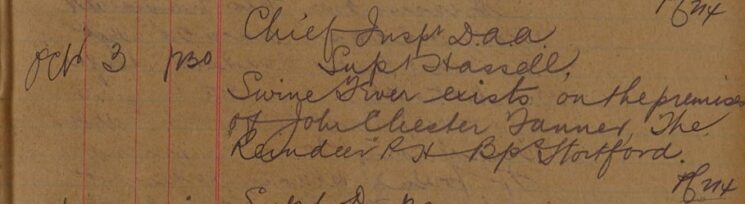 Chief Inspr D.a.a.
Oct 3 1730 Supt Hassell,
Swine Fever exists on the premises
of John Chester Tanner, The
Reindeer P.H Bps Stortford.